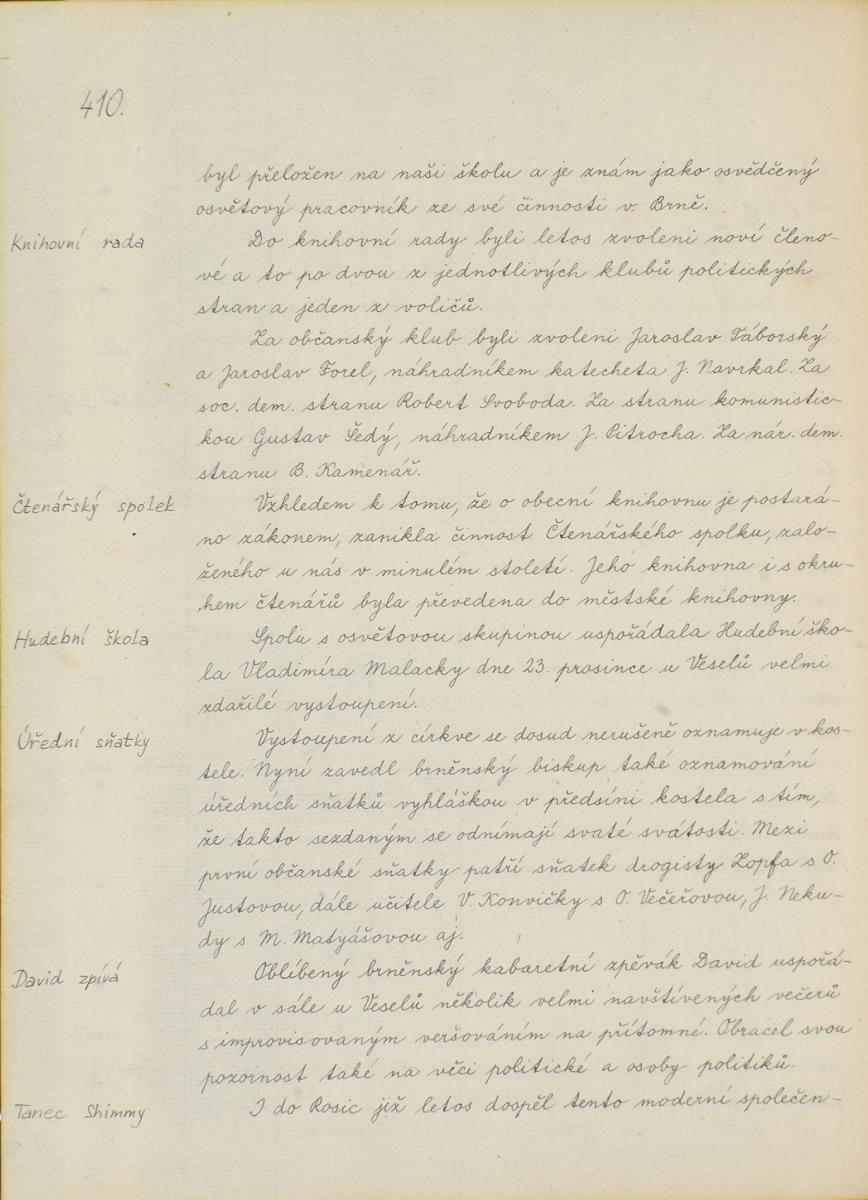 410.
byl přeložen na naši školu a je znám jako osvědčený
osvětový pracovník ze své činnosti v Brně.
Knihovní rada
Do knihovní rady byli letos zvoleni noví členo-
vé a to po dvou z jednotlivých klubů politických
stran a jeden z voličů.
Za občanský klub byli zvoleni Jaroslav Táborský
a Jaroslav Forel, náhradníkem katecheta J. Navrkal. Za
soc. dem. stranu Robert Svoboda. Za stranu komunistic-
kou Gustav Šedý, náhradníkem J. Pitrocha. Za nár. dem.
stranu B. Kamenář.
Čtenářský spolek
Vzhledem k tomu, že o obecní knihovnu je postará-
no zákonem, zanikla činnost Čtenářského spolku, zalo-
ženého u nás v minulém století. Jeho knihovna i s okru-
hem čtenářů byla převedena do městské knihovny.
Hudební škola
Spolu s osvětovou skupinou uspořádala Hudební ško-
la Vladimíra Malacky dne 23. prosince u Veselů velmi
zdařilé vystoupení.
Úřední sňatky
Vystoupení z církve se dosud nerušeně oznamuje v kos-
tele. Nyní zavedl brněnský biskup také oznamování
úředních sňatků vyhláškou v předsíni kostela s tím,
že takto sezdaným se odnímají svaté svátosti. Mezi
první občanské sňatky patří sňatek drogisty Zopfa s O.
Justovou, dále učitele V. Konvičky s O. Večeřovou, J. Neku-
dy s M. Matyášovou aj.
David zpívá
Oblíbený brněnský kabaretní zpěvák David uspořá-
dal v sále u Veselů několik velmi navštívených večerů
s improvisovaným veršováním na přítomné. Obracel svou
pozornost také na věci politické a osoby politiků.
Tanec Shimmy
I do Rosic již letos dospěl tento moderní společen-